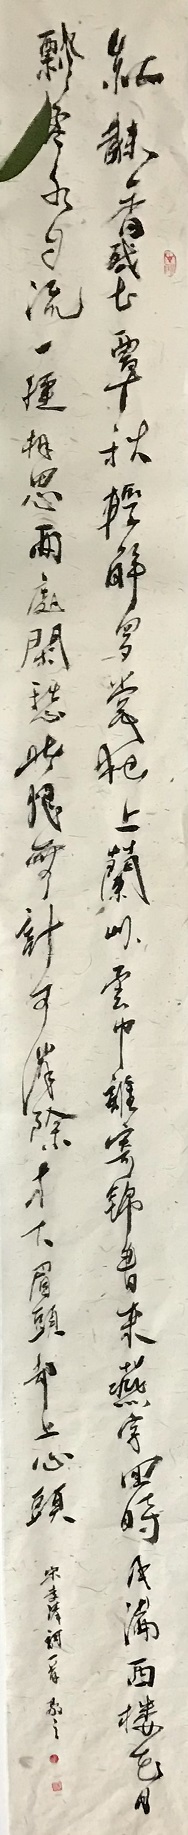 紅藕香殘玉簟秋輕解羅裳獨上蘭舟雲中誰寄錦書來雁字回時月滿西楼花自
飄零水自流一種相思兩處閑愁此情無計可消除才下眉頭却上心頭
宋李清照詞一首